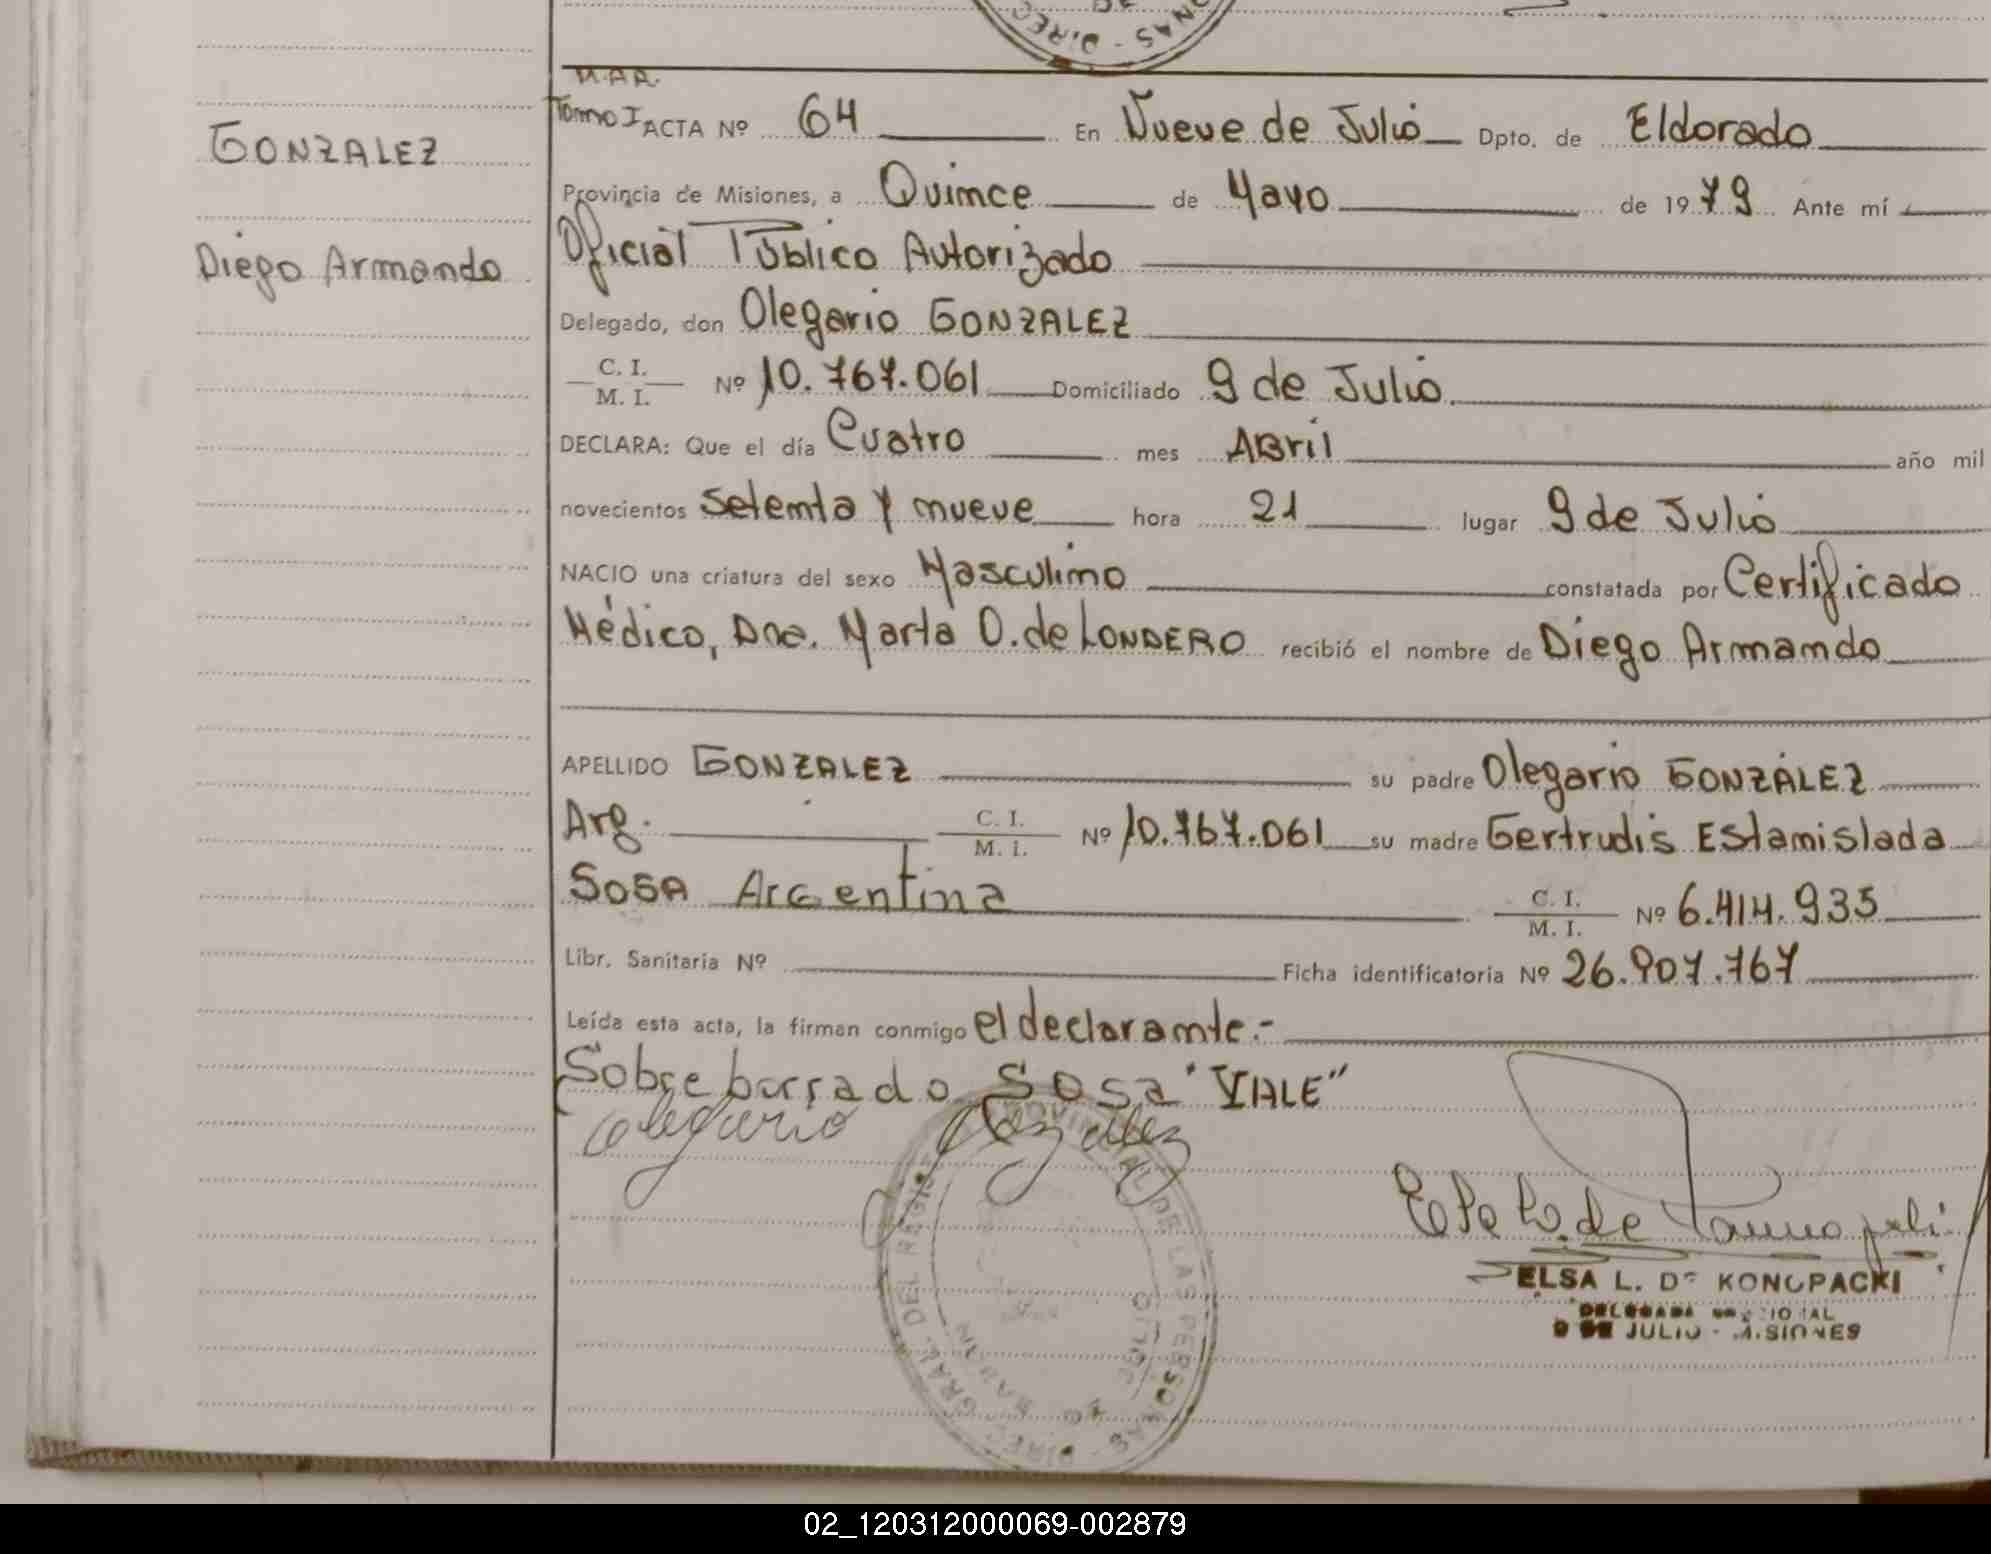 DIREC
NAS
GONZALEZ
Diego Armando
Tomo I ACTA Nº 64 En Nueve de Julio Dpto. de Eldorado
Provincia de Misiones, a Quince de Mayo de 1979 Ante mí
Oficial Público Autorizado
Delegado, don Olegario GONZALEZ
C. I.
M. I. Nº 10.767.061 Domiciliado 9 de Julio
DECLARA: Que el día Cuatro mes Abril año mil
novecientos setenta y nueve hora 21 lugar 9 de Julio
NACIO una criatura del sexo Masculino constatada por Certificado
Médico, Dra. Marta O. de LONDERO recibió el nombre de Diego Armando
APELLIDO GONZALEZ su padre Olegario GONZÁLEZ
Arg. C. I.
M. I. Nº 10.767.061 su madre Gertrudis Estanislada
SOSA Argentina C. I.
M. I. Nº 6.414.935
Libr. Sanitaria Nº Ficha identificatoria Nº 26.907.767
Leída esta acta, la firman conmigo el declarante.-
Sobreborrado Sosa "VALE"
Olegario Gonzalez
DIREC. GRAL. DEL REGISTRO PROVINCIAL DE LAS PERSONAS
ELSA L. DE KONOPACKI
DELEGADA
9 DE JULIO - MISIONES
02_120312000069-002879